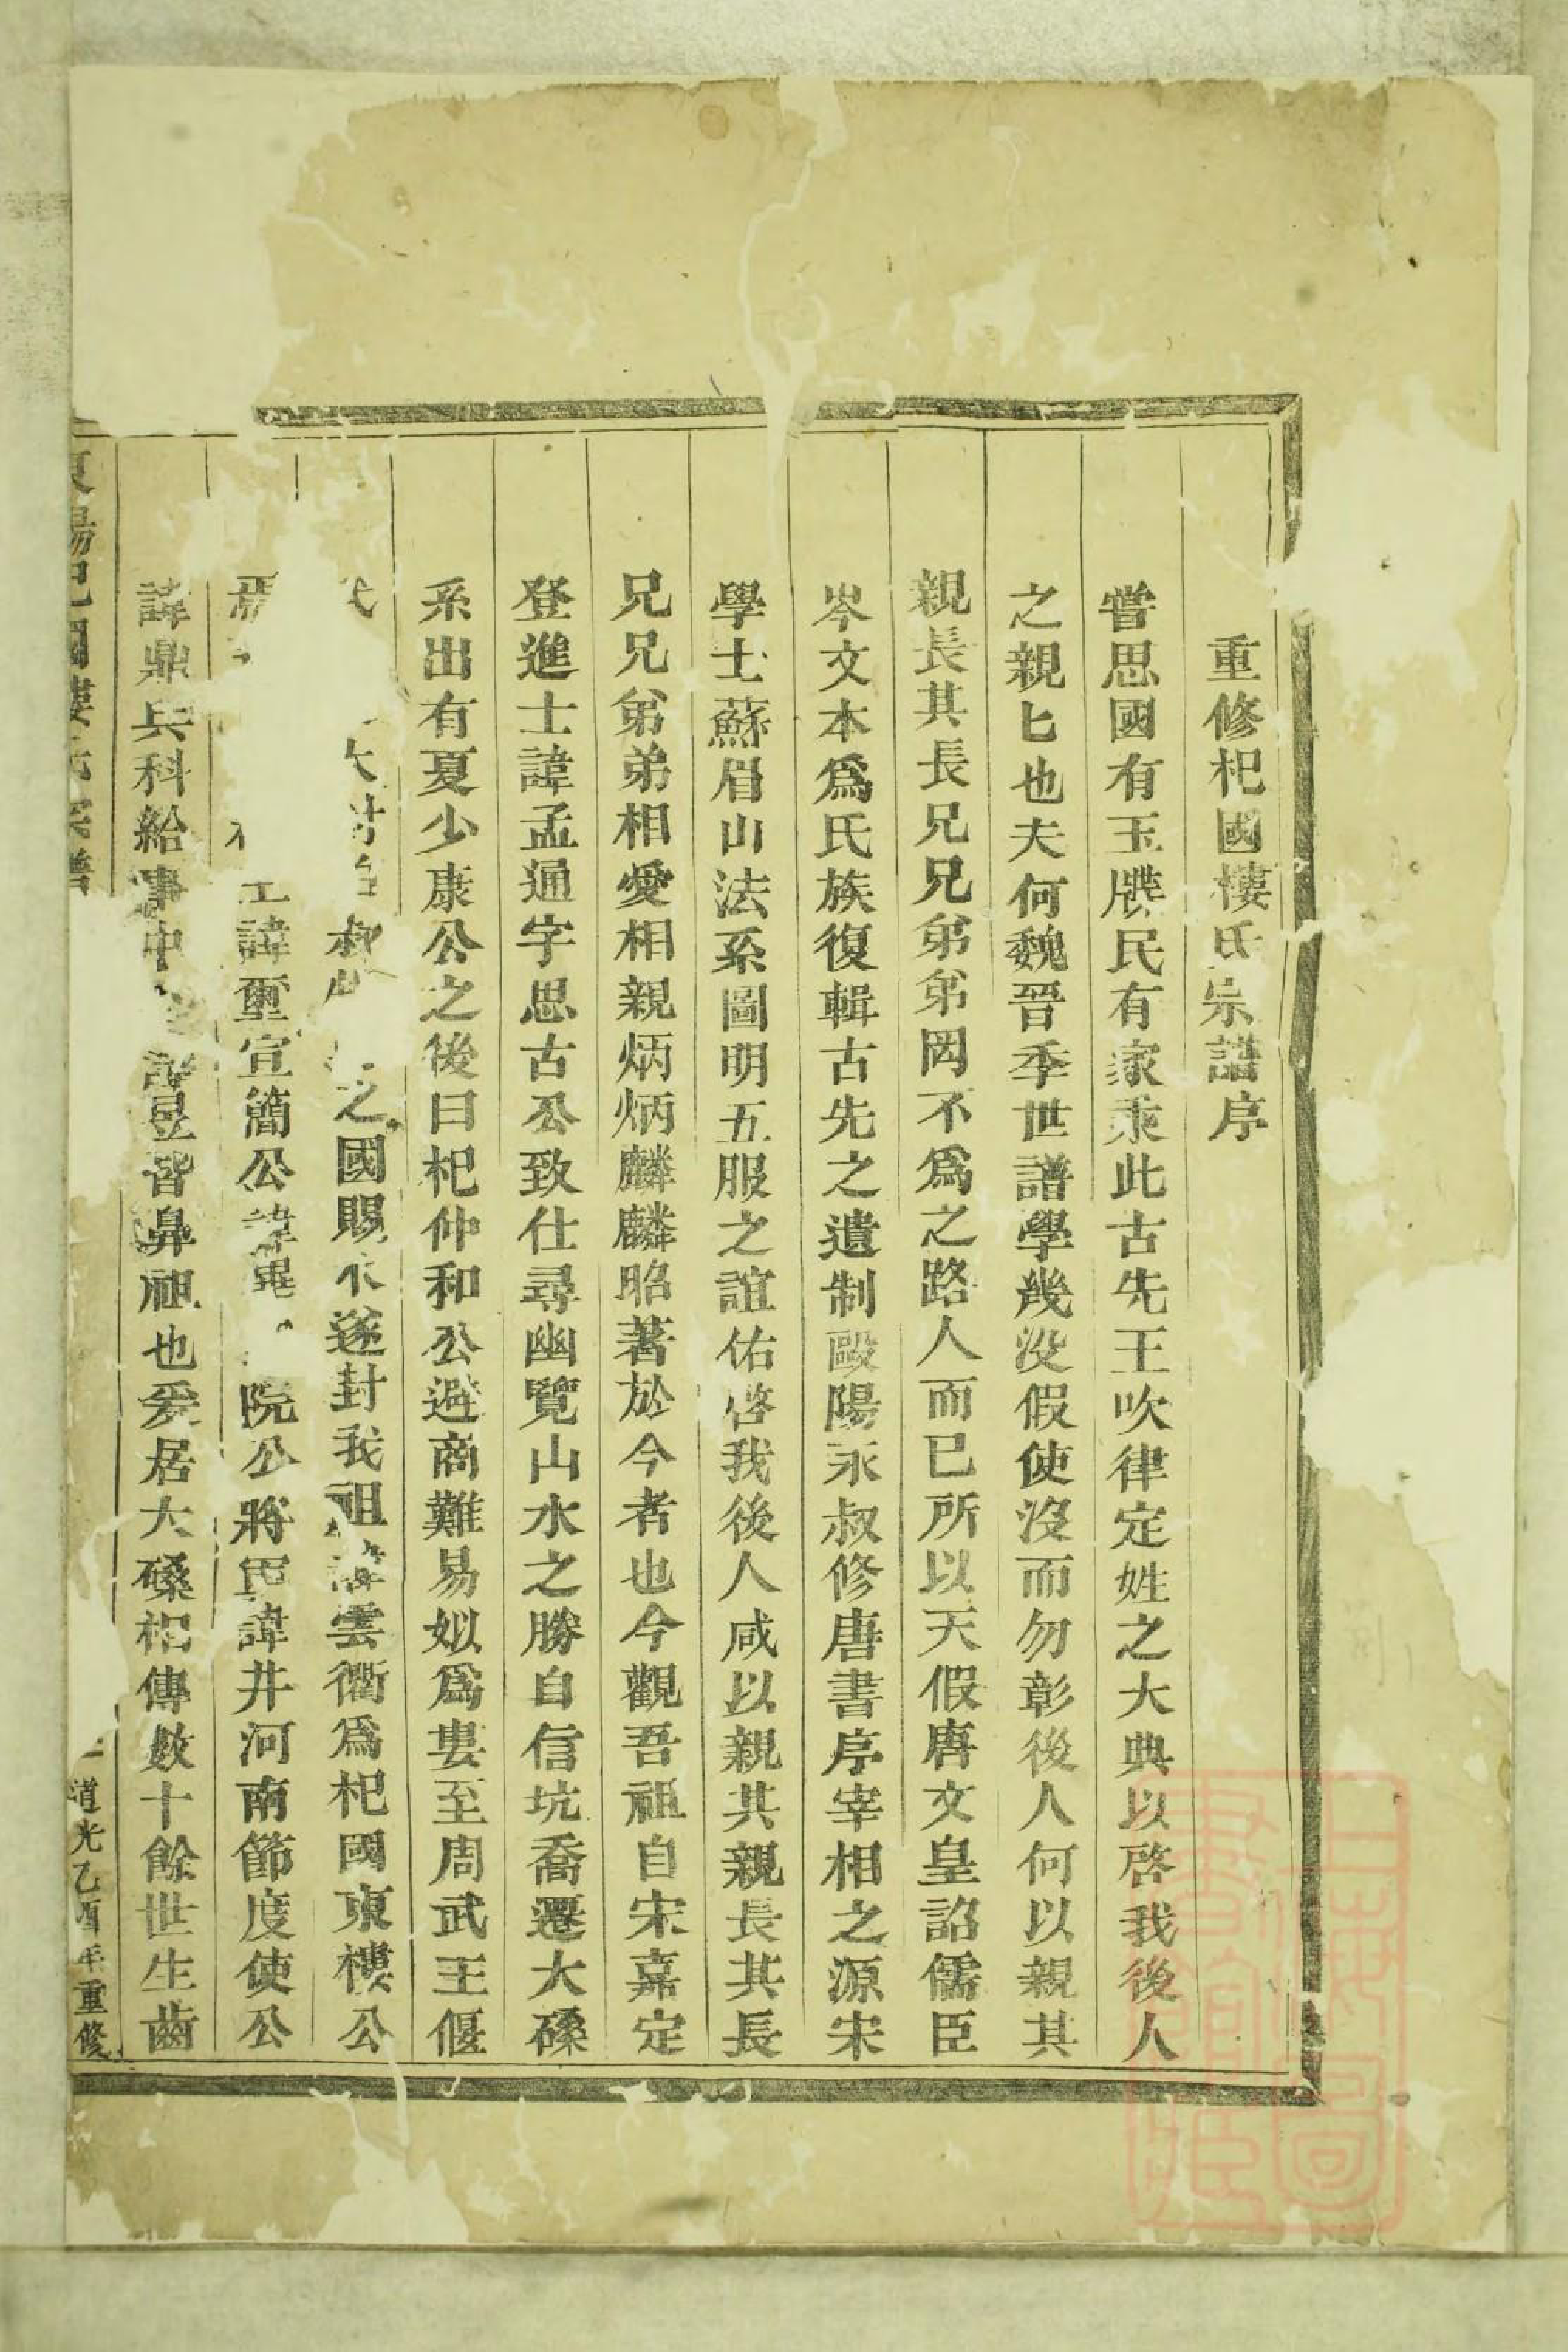 重修杞國樓氏宗譜序
嘗思國有玉牒民有家乘此古先王吹律定姓之大典以啓我後人
之親匕也夫何魏晉季世譜學幾没假使沒而勿彰後人何以親其
親長其長兄兄弟弟罔不爲之路人而已所以天假唐文皇詔儒臣
岑文本爲氏族復輯古先之遺制歐陽永叔修唐書序宰相之源宋
學士蘇眉山法系圖明五服之誼佑啓我後人咸以親其親長其長
兄兄弟弟相愛相親炳炳麟麟昭著於今者也今觀吾祖自宋嘉定
登進士諱孟通字思古公致仕尋幽覽山水之勝自信坑喬遷大磉
系出有夏少康公之後曰杞仲和公避商難易姒爲婁至周武王偃
大封之國賜遂封我祖諱雲衢爲杞國東樓公
諱壐宣簡公諱院公將軍諱井河南節度使公
諱鼎兵科給事中昱皆鼻祖也爰居大磉相傳數十餘世生齒
東陽杞國樓氏宗譜
道光乙酉年重修
上海圖書館藏